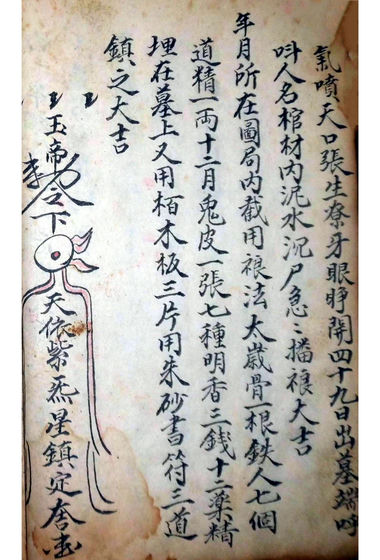 氣噴天口張生獠牙眼睜開四十九日出墓端呼
呌人名棺材內泥水沉尸急〻擋禳大吉
年月所在圖局內截用禳法太歲骨一根鉄人七個
道精一両十二月兔皮一張七種明香三銭十二藥精
埋在墓上又用栢木板三片用朱砂書符三道
鎮之大吉
玉帝勅令之下 天依紫炁星鎮定